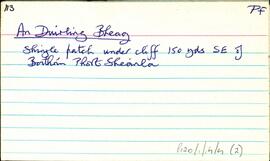 113 PF
An Duirling Bheag
Shingle patch under cliff 150 yds SE of
Bóithrín Phort Sheánla
P120/1/4/4 (2)